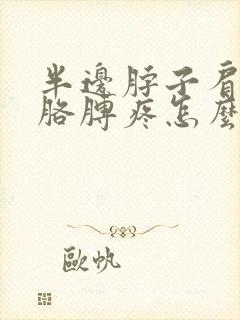 半邊脖子肩
胳膊疼怎麼
歐帆